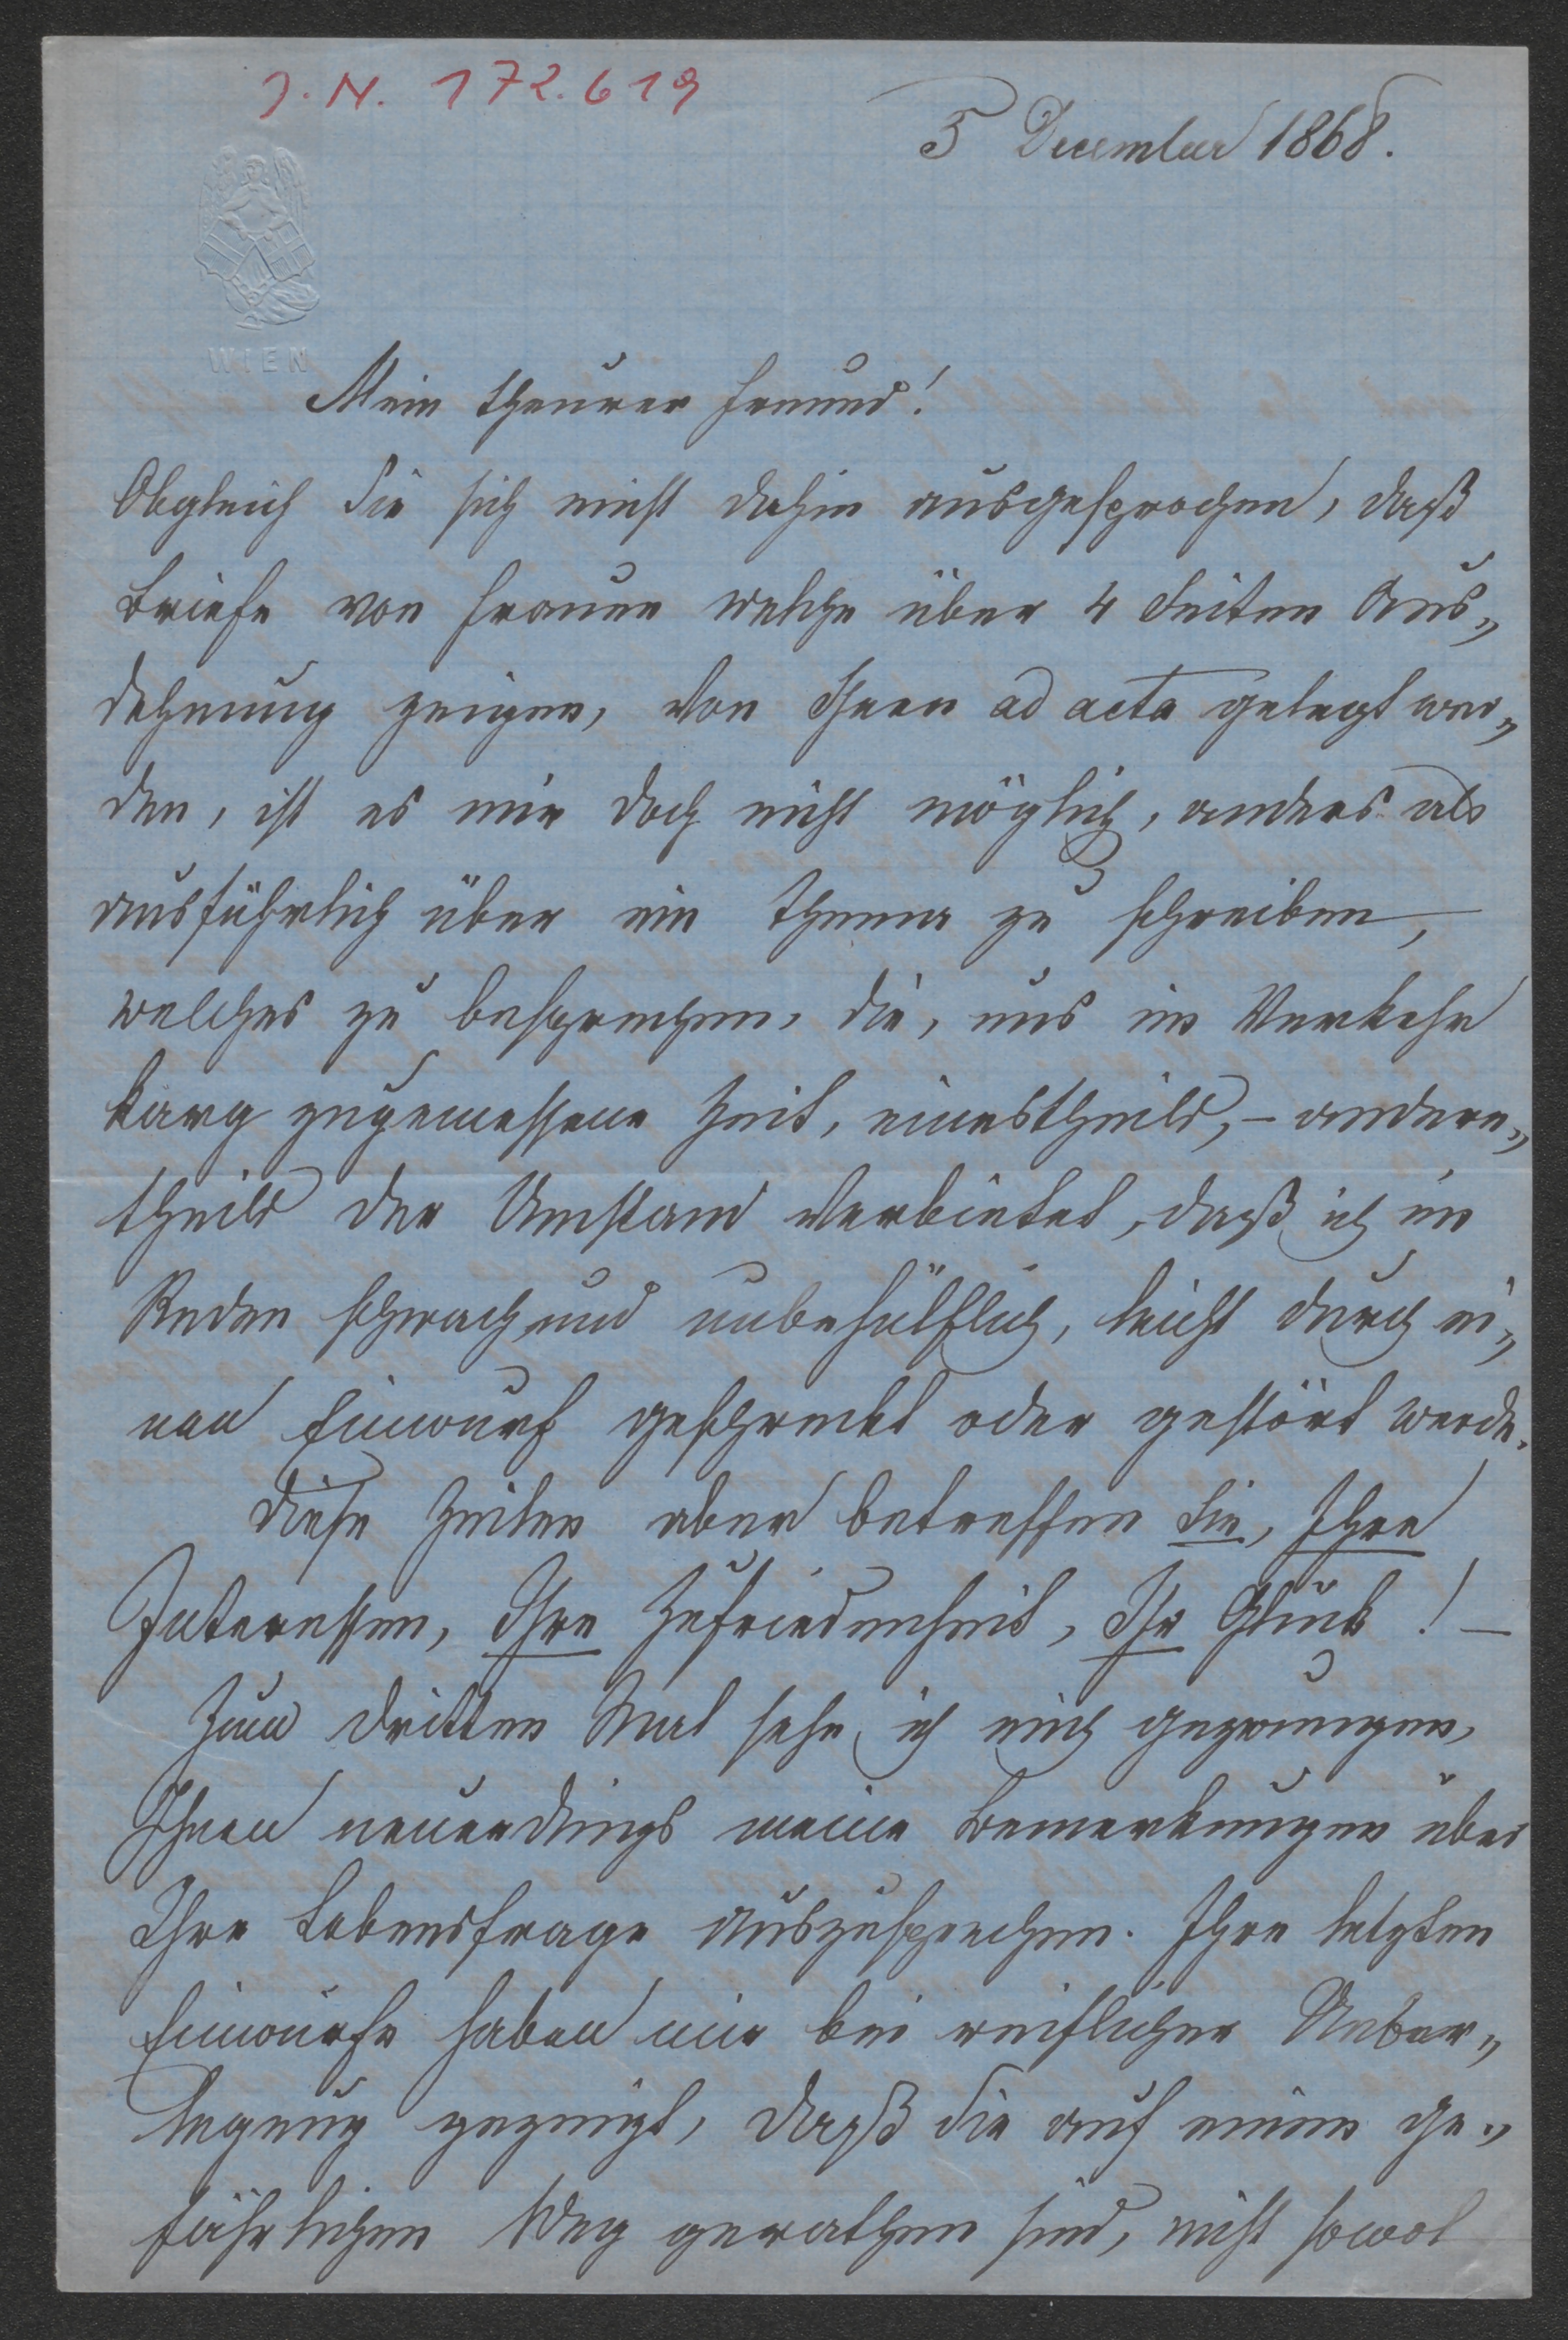 J. N. 172.619
5 December 1868.
WIEN
Mein theurer Freund!
Obgleich Sie sich nicht dahin ausgesprochen, daß
Briefe von Frauen welche über 4 Seiten Aus„
dehnung zeigen, von Ihnen ad acta gelegt wer„
den, ist es mir doch nicht möglich, anders als
ausführlich über ein Thema zu schreiben,
welches zu besprechen, die, uns im Verkehr
karg zugemessene Zeit, einestheils, – andern„
theils der Umstand verbietet, daß ich im
Reden schwach und unbehülflich, leicht durch ei„
nen Einwurf geschreckt oder gestört werde.
Diese Zeilen aber betreffen Sie, Ihre
Interessen, Ihre Zufriedenheit, Ihr Glück! –
Zum dritten Mal sehe ich mich gezwungen,
Ihnen neuerdings meine Bemerkungen über
Ihre Lebensfrage auszusprechen. Ihre letzten
Einwürfe haben mir bei reiflicher Ueber„
legung gezeigt, daß Sie auf einen ge„
fährlichen Weg gerathen sind, nicht sowol